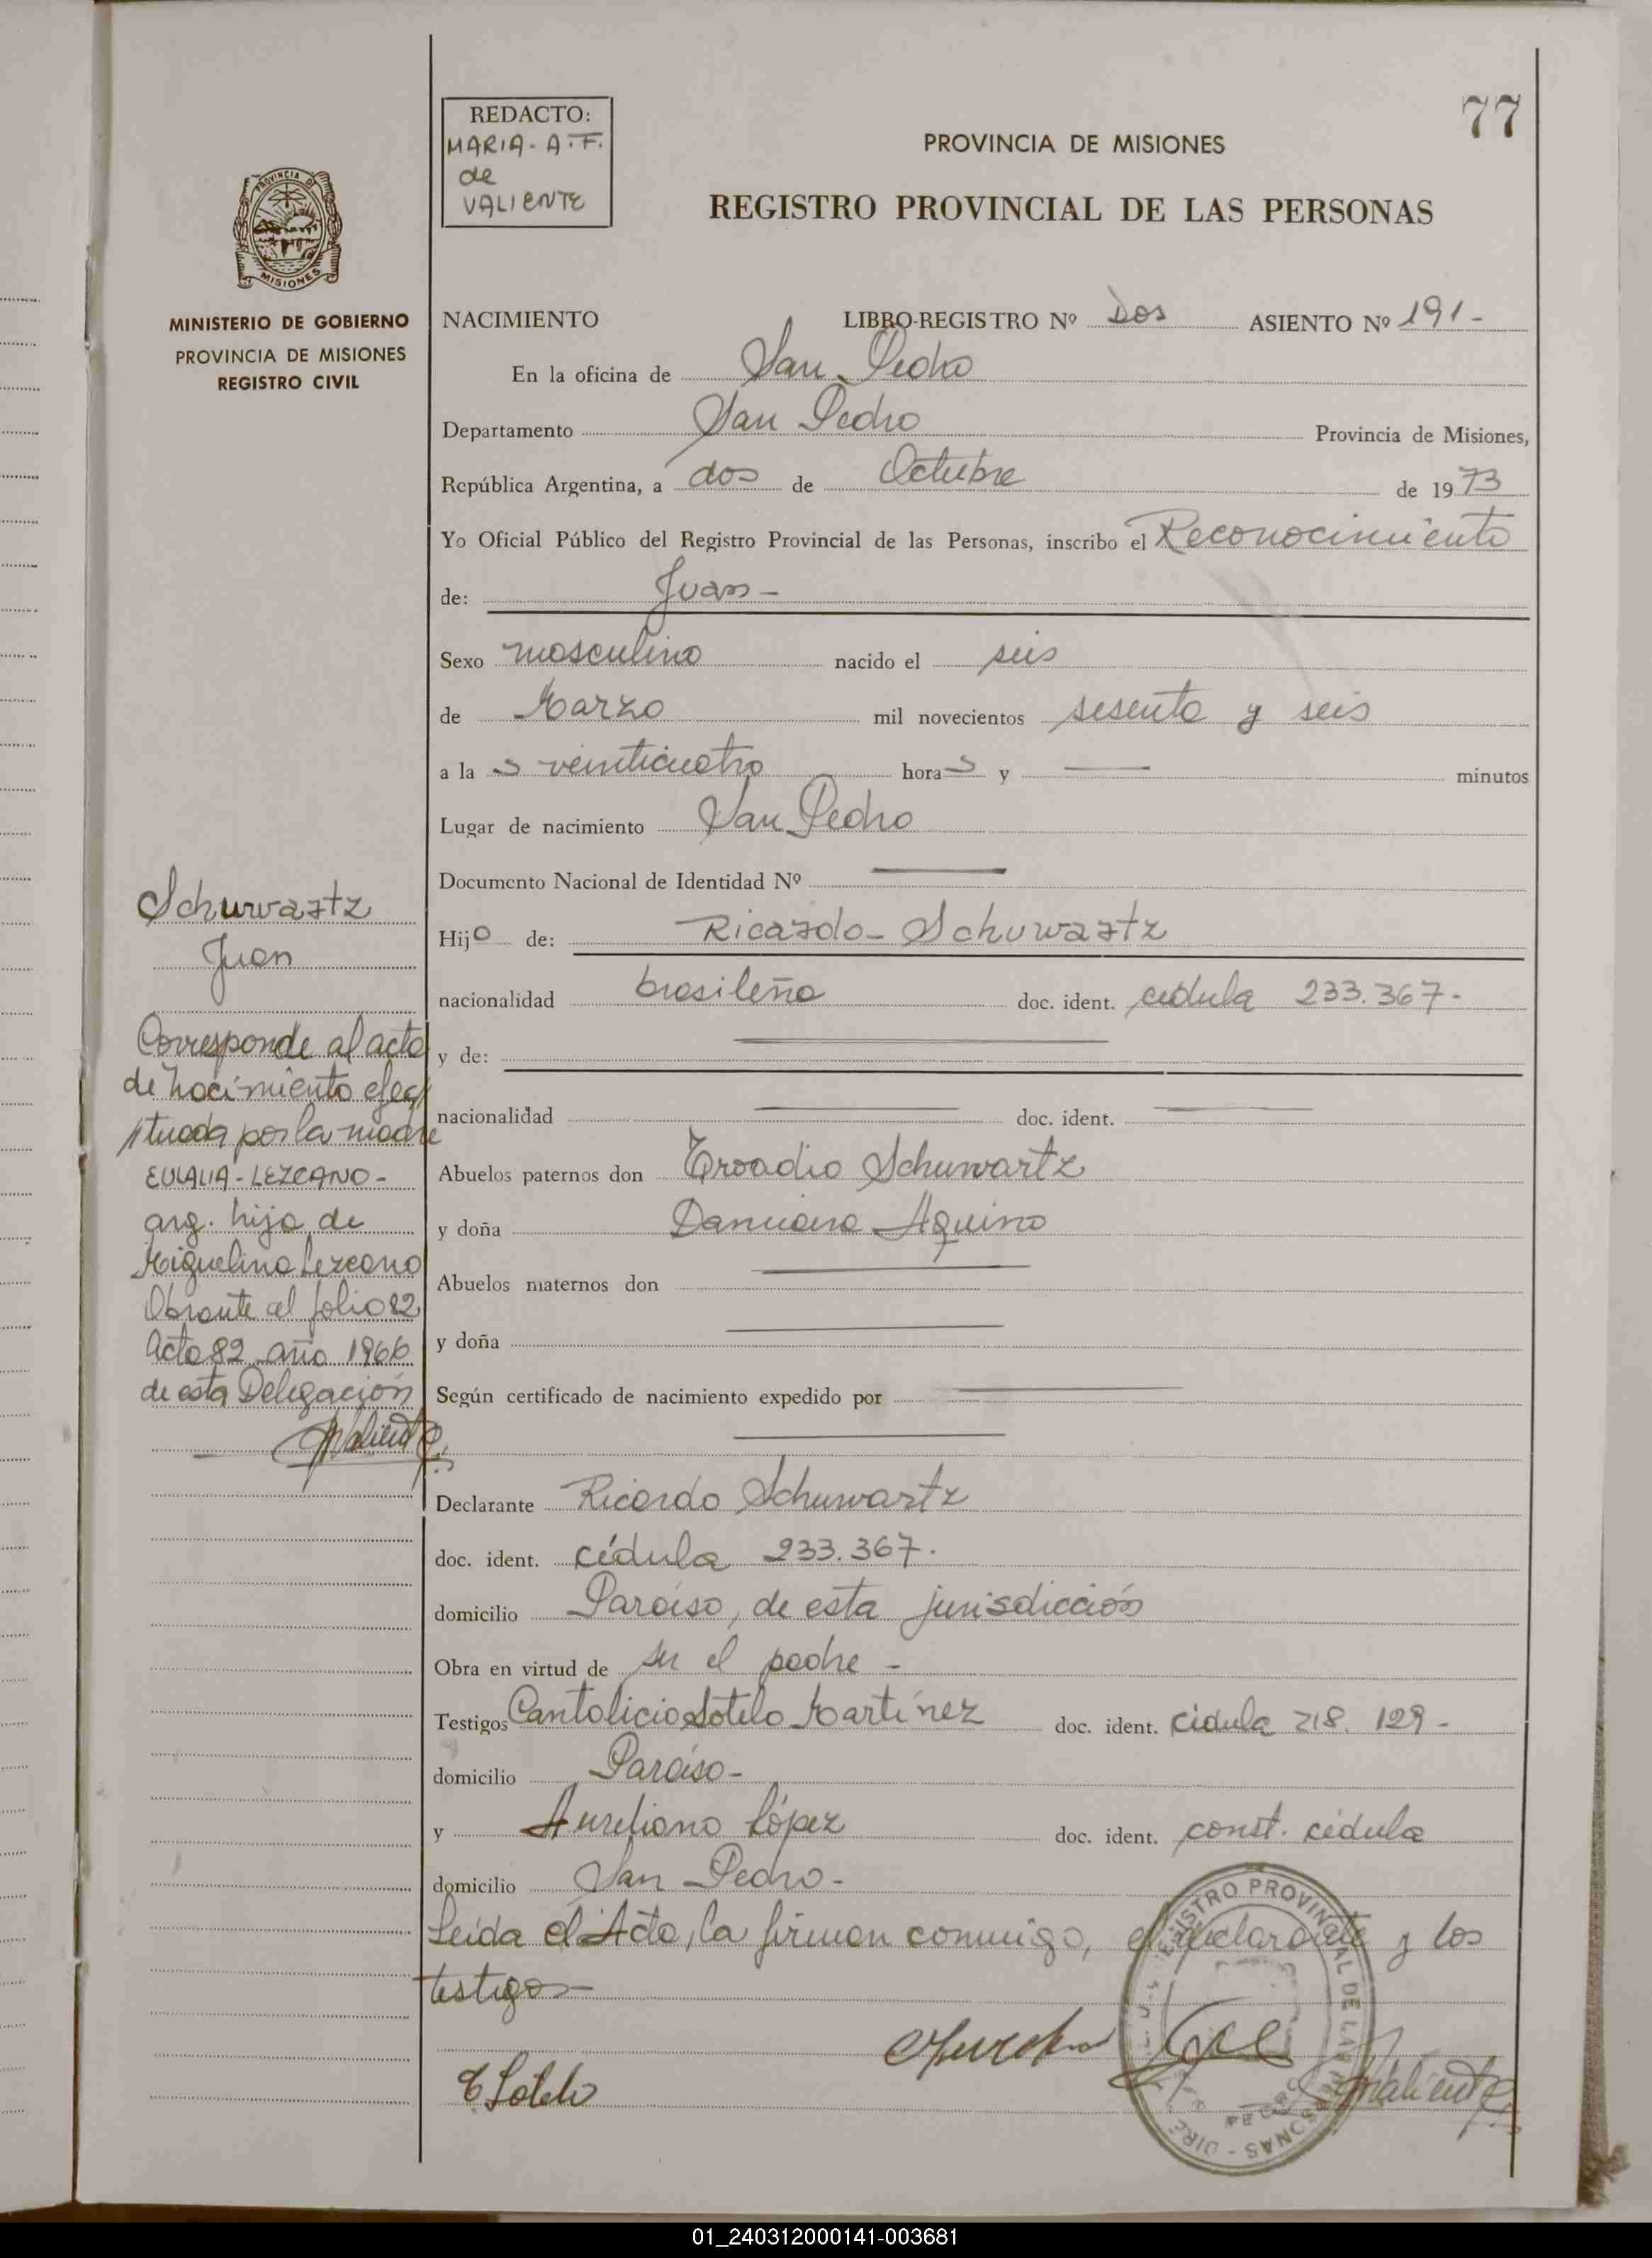 77
REDACTO:
MARIA - A. F.
de
VALIENTE
PROVINCIA DE MISIONES
REGISTRO PROVINCIAL DE LAS PERSONAS
PROVINCIA DE
MISIONES
MINISTERIO DE GOBIERNO
PROVINCIA DE MISIONES
REGISTRO CIVIL
NACIMIENTO LIBRO-REGISTRO Nº Dos ASIENTO Nº 191-
En la oficina de San Pedro
Departamento San Pedro Provincia de Misiones,
República Argentina, a dos de Octubre de 1973
Yo Oficial Público del Registro Provincial de las Personas, inscribo el Reconocimiento
de: Juan -
Sexo masculino nacido el seis
de Marzo mil novecientos sesenta y seis
a la s veinticuatro hora s y — minutos
Lugar de nacimiento San Pedro
Documento Nacional de Identidad Nº —
Hijo de: Ricardo - Schuwartz
nacionalidad brasileña doc. ident. cédula 233.367-
y de: —
nacionalidad — doc. ident. —
Abuelos paternos don Troadio Schuwartz
y doña Damiana Aquino
Abuelos maternos don —
y doña —
Según certificado de nacimiento expedido por —
—
Declarante Ricardo Schuwartz
doc. ident. cédula 233.367.
domicilio Paraíso, de esta jurisdicción
Obra en virtud de ser el padre -
Testigos Cantalicio Sotelo Martínez doc. ident. cédula 218.129-
domicilio Paraíso -
y Aureliano López doc. ident. const. cédula
domicilio San Pedro -
Leída el Acta, la firman conmigo, el declarante y los
testigos —
C Sotelo
Valiente
Schuwartz
Juan
Corresponde al acta
de nacimiento efec
tuada por la madre
EULALIA - LEZCANO -
arg. hija de
Miguelina Lezcano
Obrante al folio 82
Acta 82 año 1966
de esta Delegación
Valiente
REGISTRO PROVINCIAL DE LAS PERSONAS
01_240312000141-003681